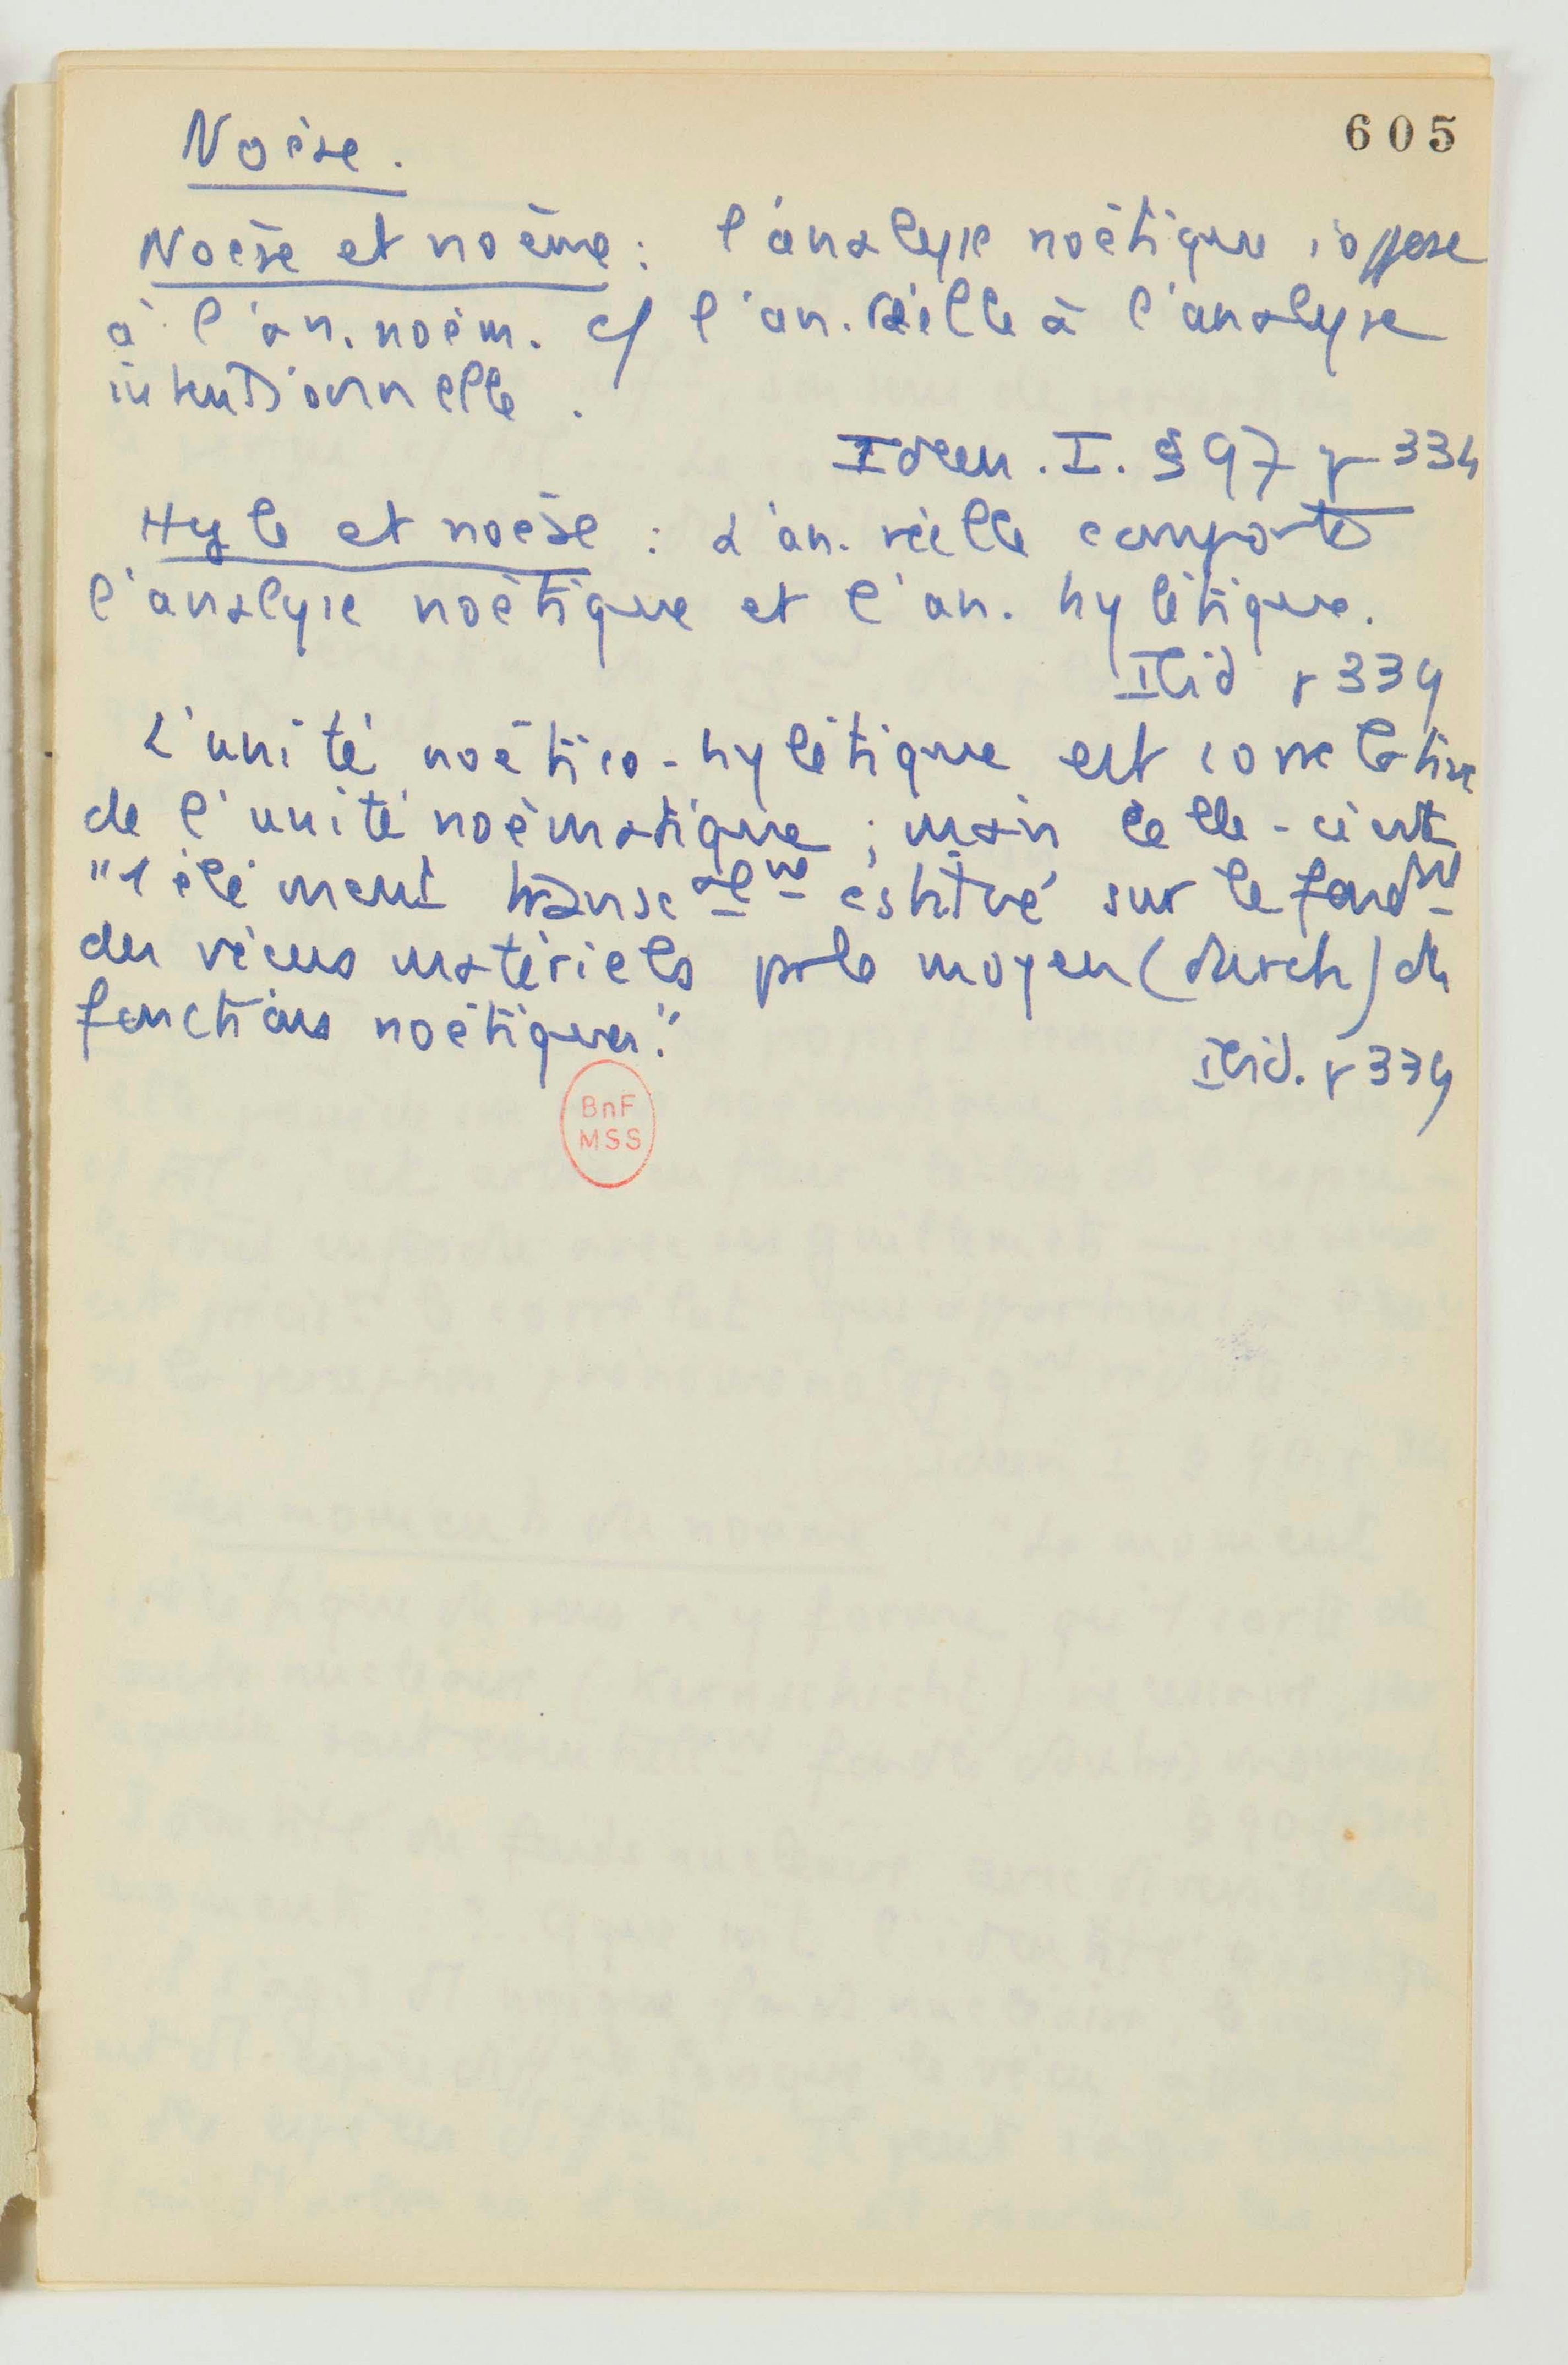 605
Noèse.
Noèse et noème : l'analyse noétique s'oppose
à l'an. noém. c/ l'an. réelle à l'analyse
intentionnelle.
Ideen. I. § 97 p 334
Hyle et noèse : L'an. réelle comporte
l'analyse noétique et l'an. hylétique.
Ibid p 339
L'unité noético-hylétique est corrélative
de l'unité noématique ; mais celle-ci est
"1 élément transcalnt cstitué sur le fondnt
des vécus matériels par le moyen (durch) des
fonctions noétiques."
Ibid. p 339
BnF
MSS